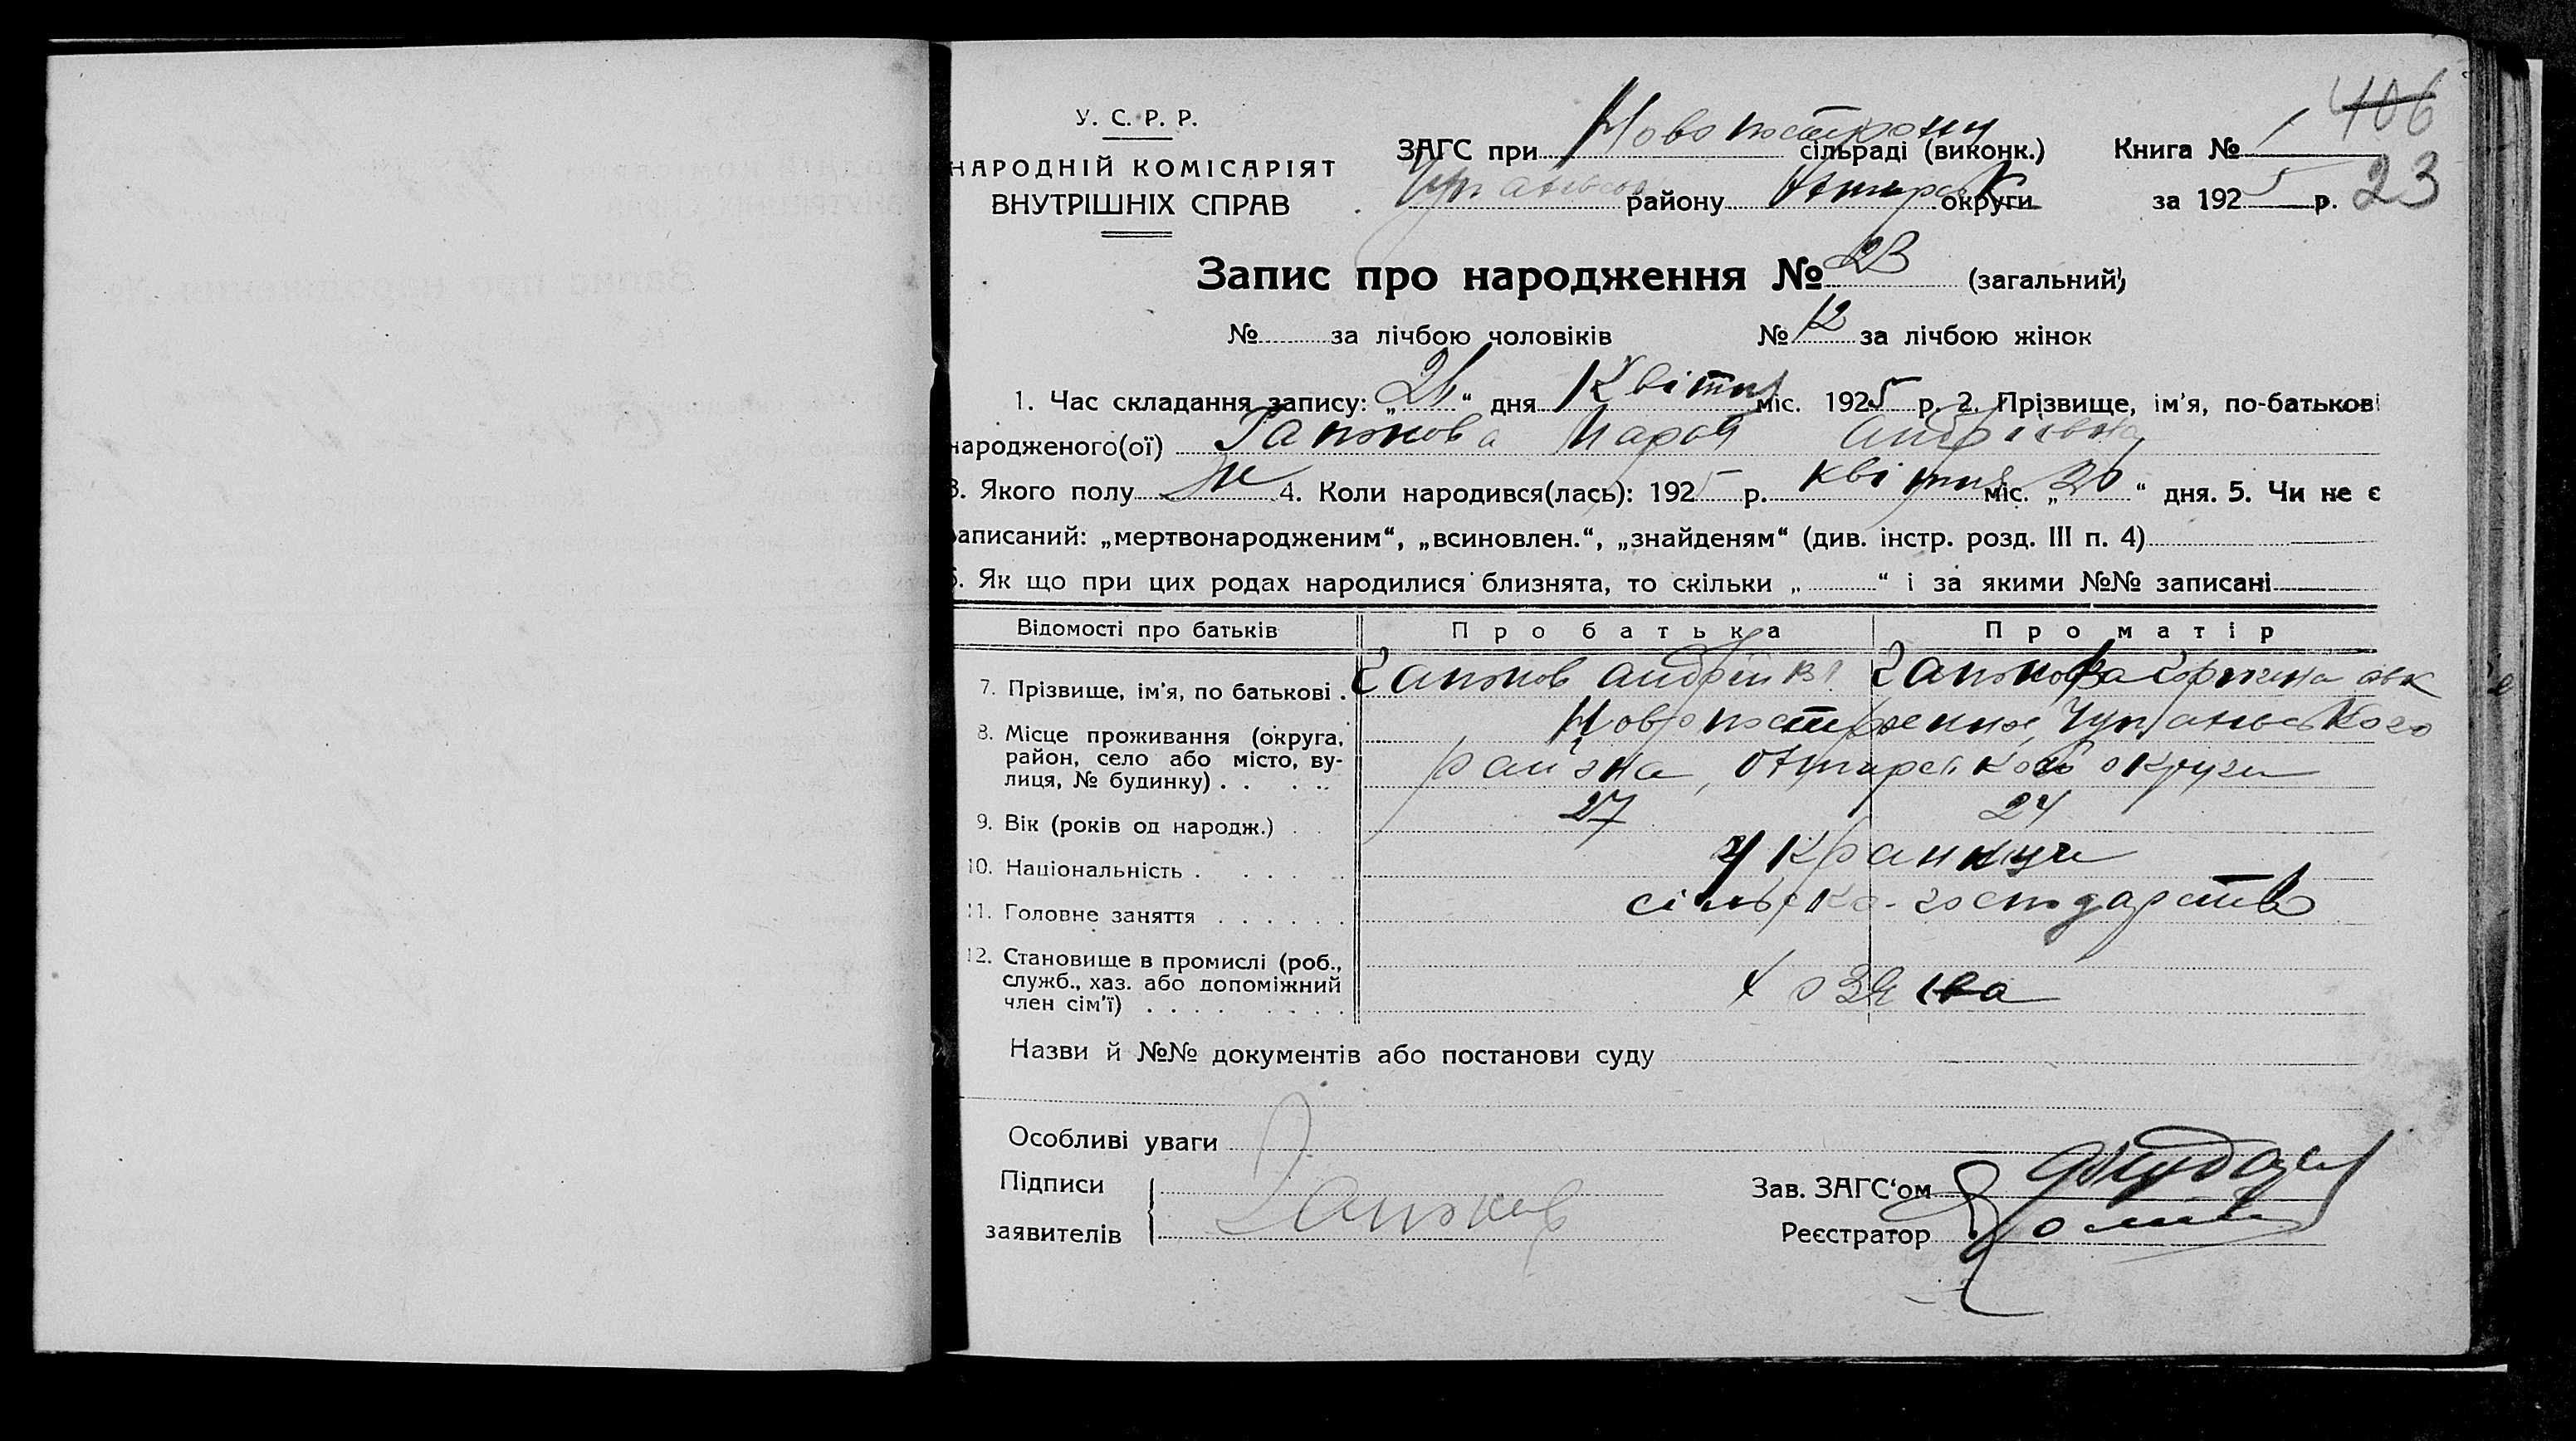 406
У. С. Р. Р.
НАРОДНІЙ КОМІСАРІЯТ
ВНУТРІШНІХ СПРАВ
ЗАГС при сільраді (виконк.)
Книга № 1
району округи
за 1925 р. 23
Запис про народження № 23 (загальний)
№ за лічбою чоловіків № 12 за лічбою жінок
1. Час складання запису: „ “ дня Квітня міс. 1925 р. 2. Прізвище, ім'я, по-батькові
народженого(ої) Гапонова Андріівна
3. Якого полу ж 4. Коли народився(лась): 1925 р. квітня міс. „20“ дня. 5. Чи не є
записаний: „мертвонародженим“, „всиновлен.“, „знайденям“ (див. інстр. розд. III п. 4)
6. Як що при цих родах народилися близнята, то скільки „ “ і за якими №№ записані
Відомості про батьків Про батька Про матір
7. Прізвище, ім'я, по батькові . Гапонов Андрій Гапонова
8. Місце проживання (округа,
район, село або місто, ву-
лиця, № будинку) . . . . района, округи
9. Вік (років од народж.) . 27 24
10. Національність . . . . . Українци
11. Головне заняття . . . . . . сільско-господарство
12. Становище в промислі (роб.,
служб., хаз. або допоміжний
член сім'ї) . . . . . . . . хозяіва
Назви й №№ документів або постанови суду
Особливі уваги
Підписи
заявителів Гапонов
Зав. ЗАГС'ом
Реєстратор